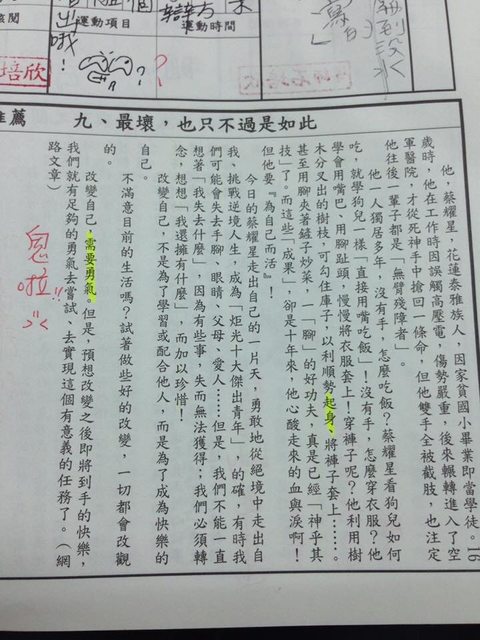 運動項目
運動時間
培欣
推薦　九、最壞，也只不過是如此
他，蔡耀星，花蓮泰雅族人，因家貧國小畢業即當學徒。16
歲時，他在工作時因誤觸高壓電，傷勢嚴重，後來輾轉進入了空
軍醫院，才從死神手中搶回一條命，但他雙手全被截肢，也注定
他往後一輩子都是「無臂殘障者」。
他一人獨居多年，沒有手，怎麼吃飯？蔡耀星看狗兒如何
吃，就學狗兒一樣「直接用嘴吃飯」！沒有手，怎麼穿衣服？他
學會用嘴巴、用腳趾頭，慢慢將衣服套上！穿褲子呢？他利用樹
木分叉出的樹枝，可勾住庫子，以利順勢起身、將褲子套上……。
甚至用腳夾著鏟子炒菜，一「腳」的好功夫，真是已經「神乎其
技」了。而這些「成果」，卻是十年來，他心酸走來的血與淚啊！
但他要『為自己而活』！
今日的蔡耀星走出自己的一片天，勇敢地從絕境中走出自
我、挑戰逆境人生，成為「炬光十大傑出青年」，的確，有時我
們可能會失去手腳、眼睛、父母、愛人……但是，我們不能一直
想著「我失去什麼」，因為有些事，失而無法獲得；我們必須轉
念，想想「我還擁有什麼」，而加以珍惜！
改變自己，不是為了學習或配合他人，而是為了成為快樂的
自己。
不滿意目前的生活嗎？試著做些好的改變，一切都會改觀
的。
改變自己，需要勇氣。但是，預想改變之後即將到手的快樂，
我們就有足夠的勇氣去嘗試、去實現這個有意義的任務了。（網
路文章）